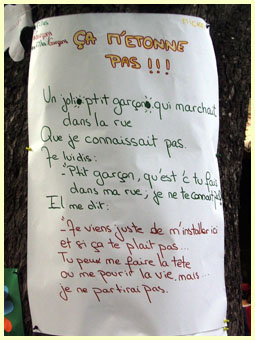 ÇA M'ETONNE
PAS !!!
Un joli p'tit garçon qui marchait
dans la rue
Que je connaissait pas.
Je lui dis:
-"P'tit garçon, qu'est c' tu fais
dans ma rue, je ne te connait pas
Il me dit:
-"Je viens juste de m'installer ici
et si ça te plait pas...
Tu peux me faire la tête
ou me pourir la vie, mais...
je ne partirai pas.